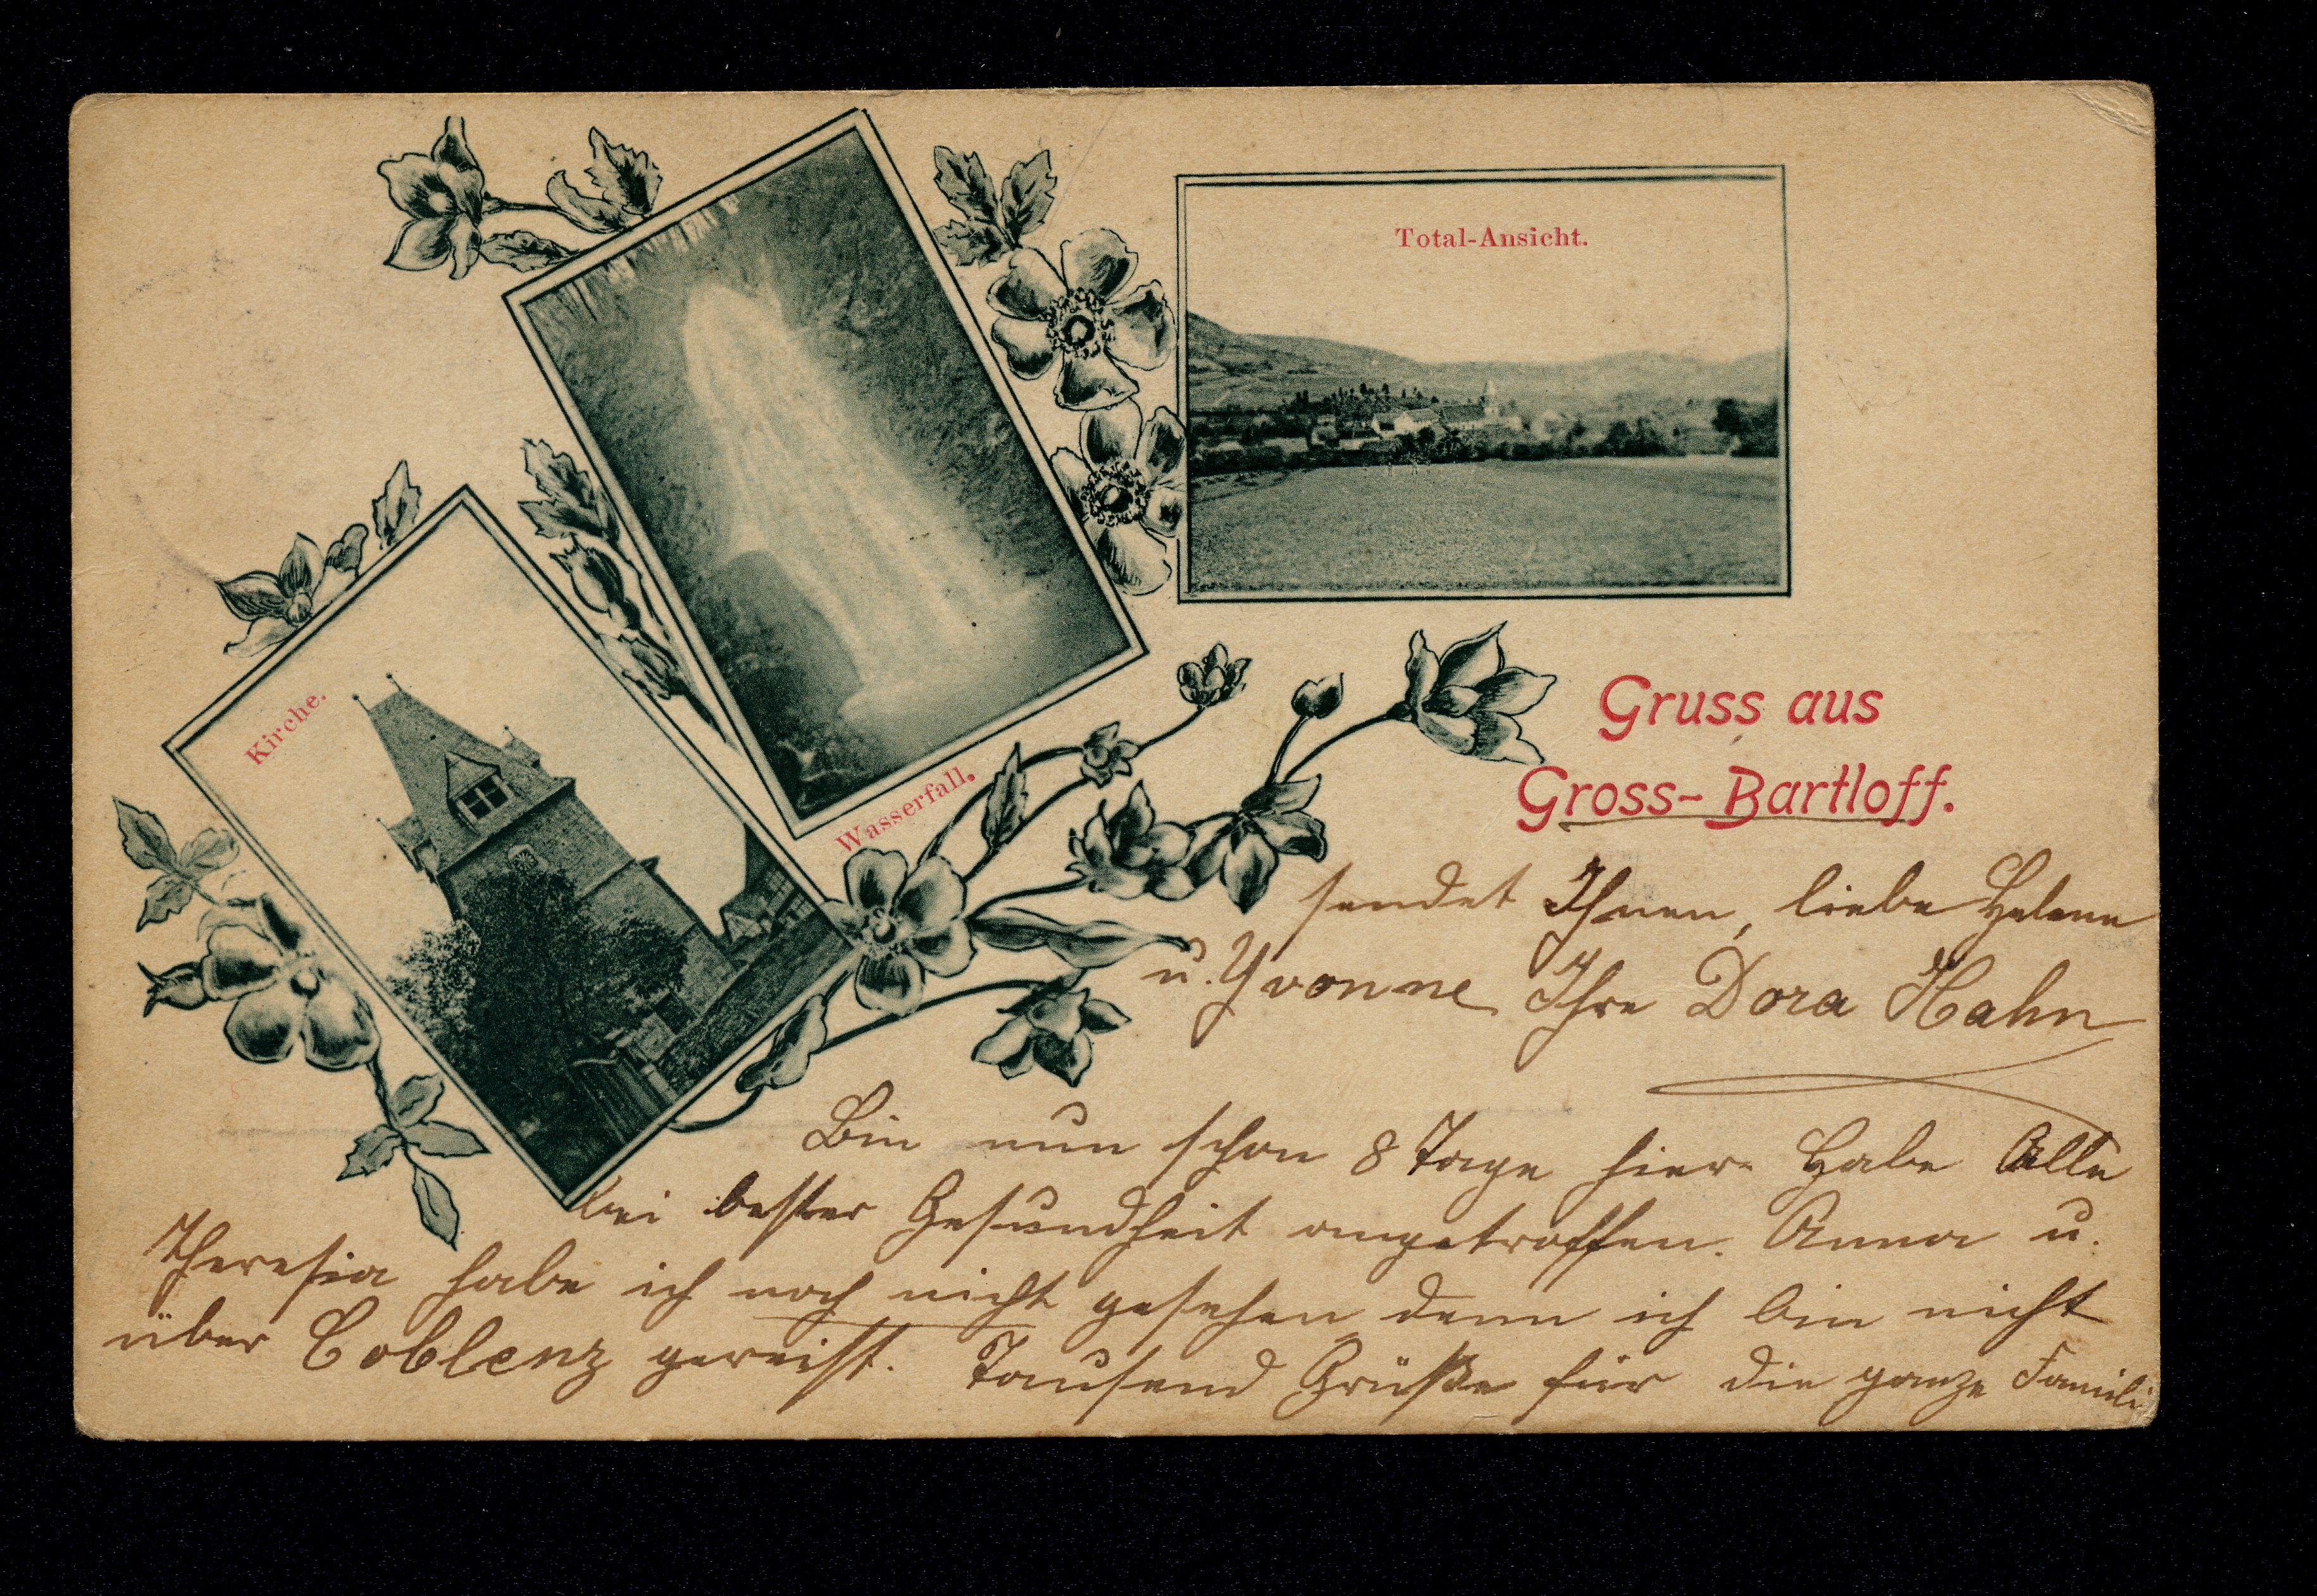 Total-Ansicht.
Kirche.
Wasserfall.
Gruss aus
Gross-Bartloff.
sendet Ihnen, liebe Helene
u. Yvonne Ihre Dora Hahn
Bin nun schon 8 Tage hier. Habe Alle
bei bester Gesundheit angetroffen. Anna u.
Theresia habe ich noch nicht gesehen denn ich bin nicht
über Coblenz gereist. Tausend Grüße für die ganze Famili